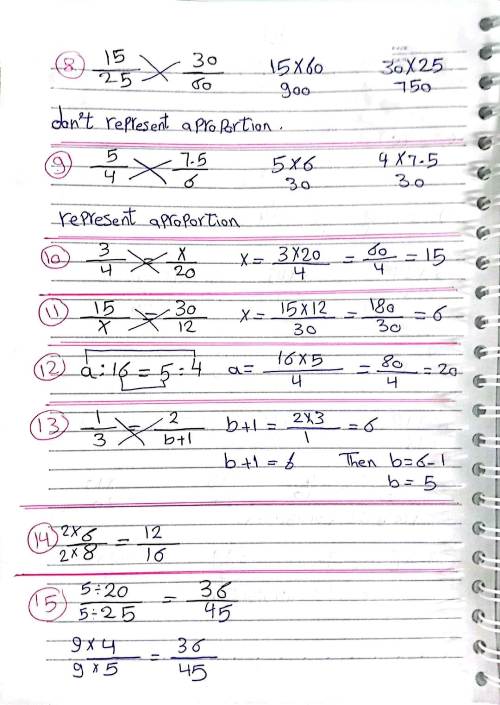 8 15/25 30/60 15×60 30×25
900 750
don't represent a proportion.
9 5/4 7.5/6 5×6 4×7.5
30 30
represent a proportion
10 3/4 = x/20 x = 3×20/4 = 60/4 = 15
11 15/x = 30/12 x = 15×12/30 = 180/30 = 6
12 a:16 = 5:4 a = 16×5/4 = 80/4 = 20
13 1/3 = 2/b+1 b+1 = 2×3/1 = 6
b+1 = 6 Then b=6-1
b= 5
14 2×6/2×8 = 12/16
15 5÷20/5÷25 = 36/45
9×4/9×5 = 36/45